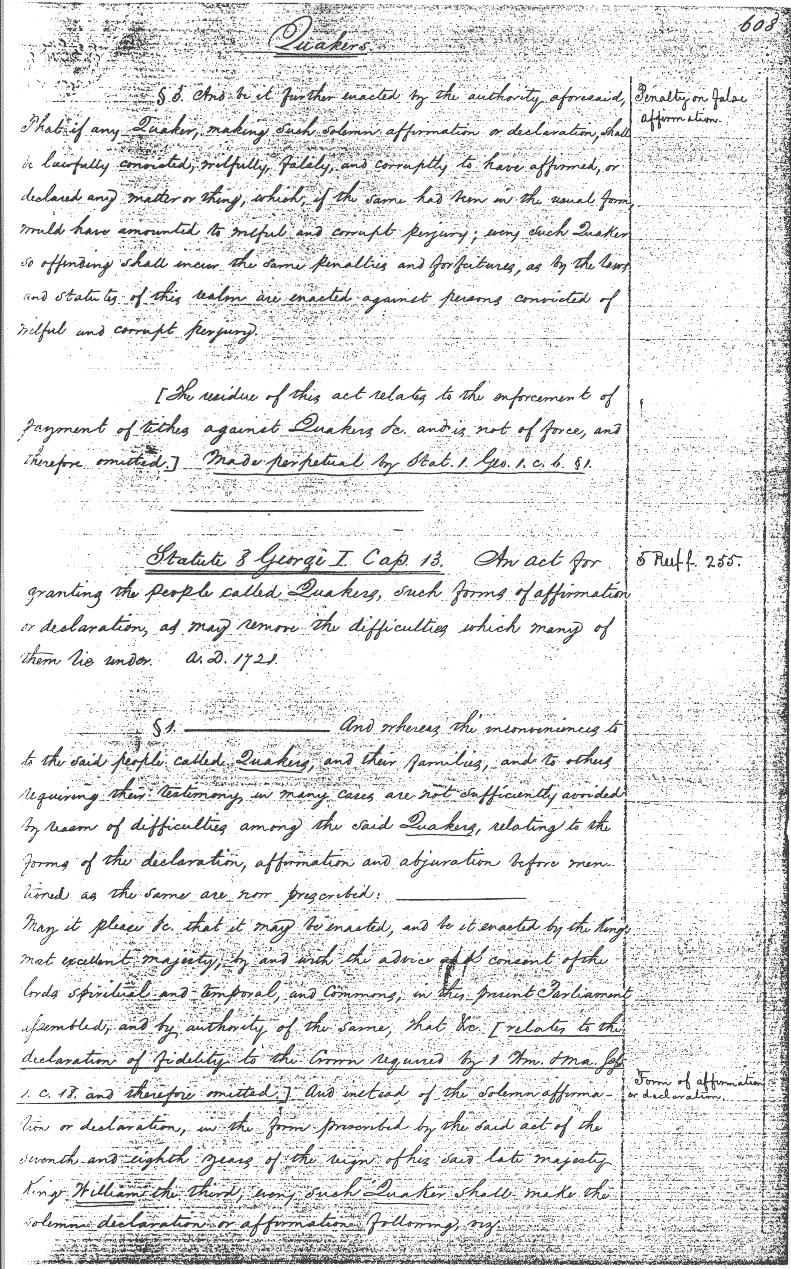 608
Quakers.
§ 3. And be it further enacted by the authority aforesaid,
That if any Quaker, making such solemn affirmation or declaration, shall
be lawfully convicted, wilfully, falsly, and corruptly to have affirmed, or
declared any matter or thing, which, if the same had been in the usual form,
would have amounted to wilful and corrupt perjury; every such Quaker
so offending shall incur the same penalties and forfeitures, as by the laws
and statutes of this realm are enacted against persons convicted of
wilful and corrupt perjury.
Penalty on false
affirmation.
[The residue of this act relates to the enforcement of
payment of tithes against Quakers &c. and is not of force, and
therefore omitted.] Made perpetual by Stat. 1. Geo. 1. c. 6. §1.
Statute 8 George I. Cap. 13. An act for
granting the people called Quakers, such forms of affirmation
or declaration, as may remove the difficulties which many of
them lie under. A.D. 1721.
5 Ruff. 255.
§1. And whereas the inconveniences to
to the said people called Quakers, and their families, and to others
requiring their testimony, in many cases are not sufficiently avoided
by reason of difficulties among the said Quakers, relating to the
forms of the declaration, affirmation and abjuration before men-
tioned as the same are now prescribed:
May it please &c. that it may be enacted, and be it enacted by the Kings
most excellent majesty, by and with the advice and consent of the
lords spiritual and temporal, and Commons, in this present Parliament
assembled, and by authority of the same, that &c. [relates to the
declaration of fidelity to the Crown required by 1 Wm. & Ma. Sess
1. c. 18. and therefore omitted.] And instead of the solemn affirma-
tion or declaration, in the form prescribed by the said act of the
seventh and eighth years of the reign of his said late majesty
King William the third, every such Quaker shall make the
solemn declaration or affirmation following, viz.
Form of affirmation
or declaration.